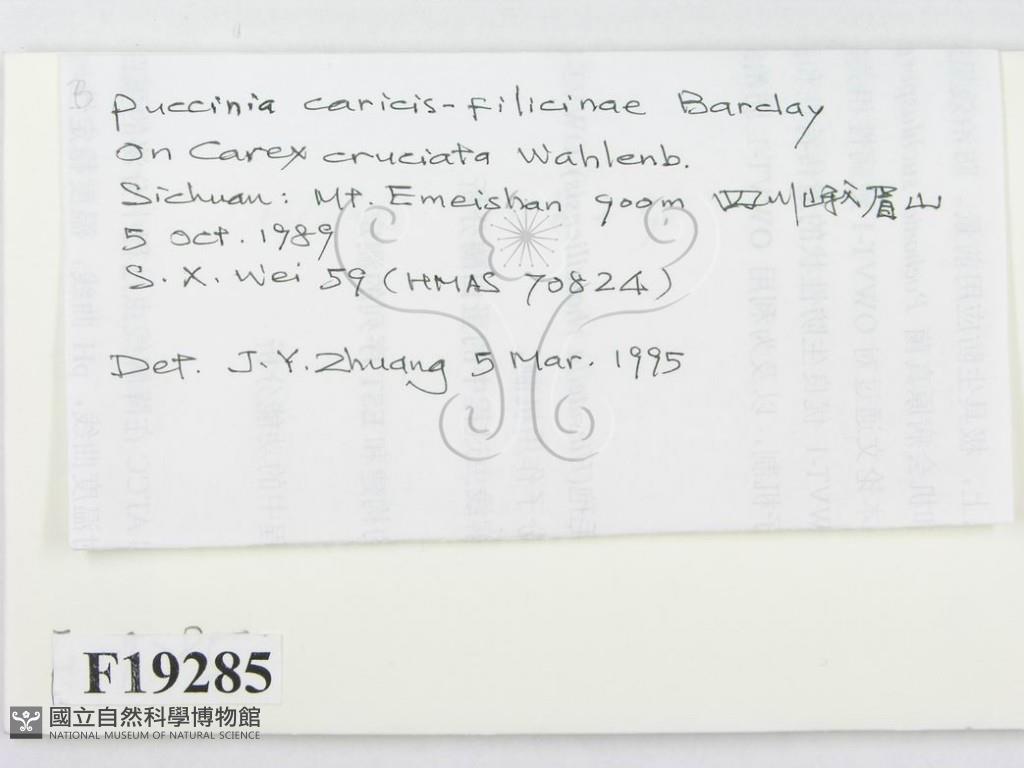 B
Puccinia caricis-filicinae Barclay
On Carex cruciata Wahlenb.
Sichuan: Mt. Emeishan 900m 四川峨眉山
5 Oct. 1989
S. X. Wei 59 (HMAS 70824)
Det. J. Y. Zhuang 5 Mar. 1995
F19285
國立自然科學博物館
NATIONAL MUSEUM OF NATURAL SCIENCE